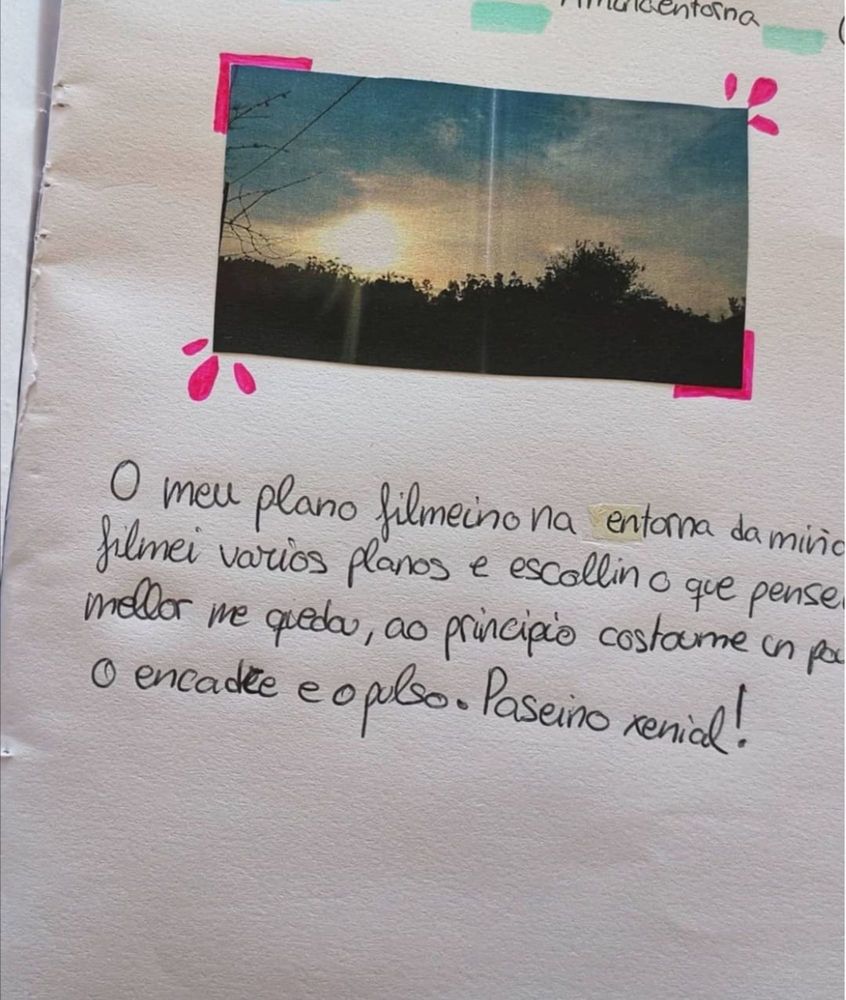 entorna
O meu plano filmeino na entorna da miña
filmei varios planos e escollin o que pensei
mellor me quedou, ao principio costoume un pou
o encadre e o pulso. Paseino xenial!